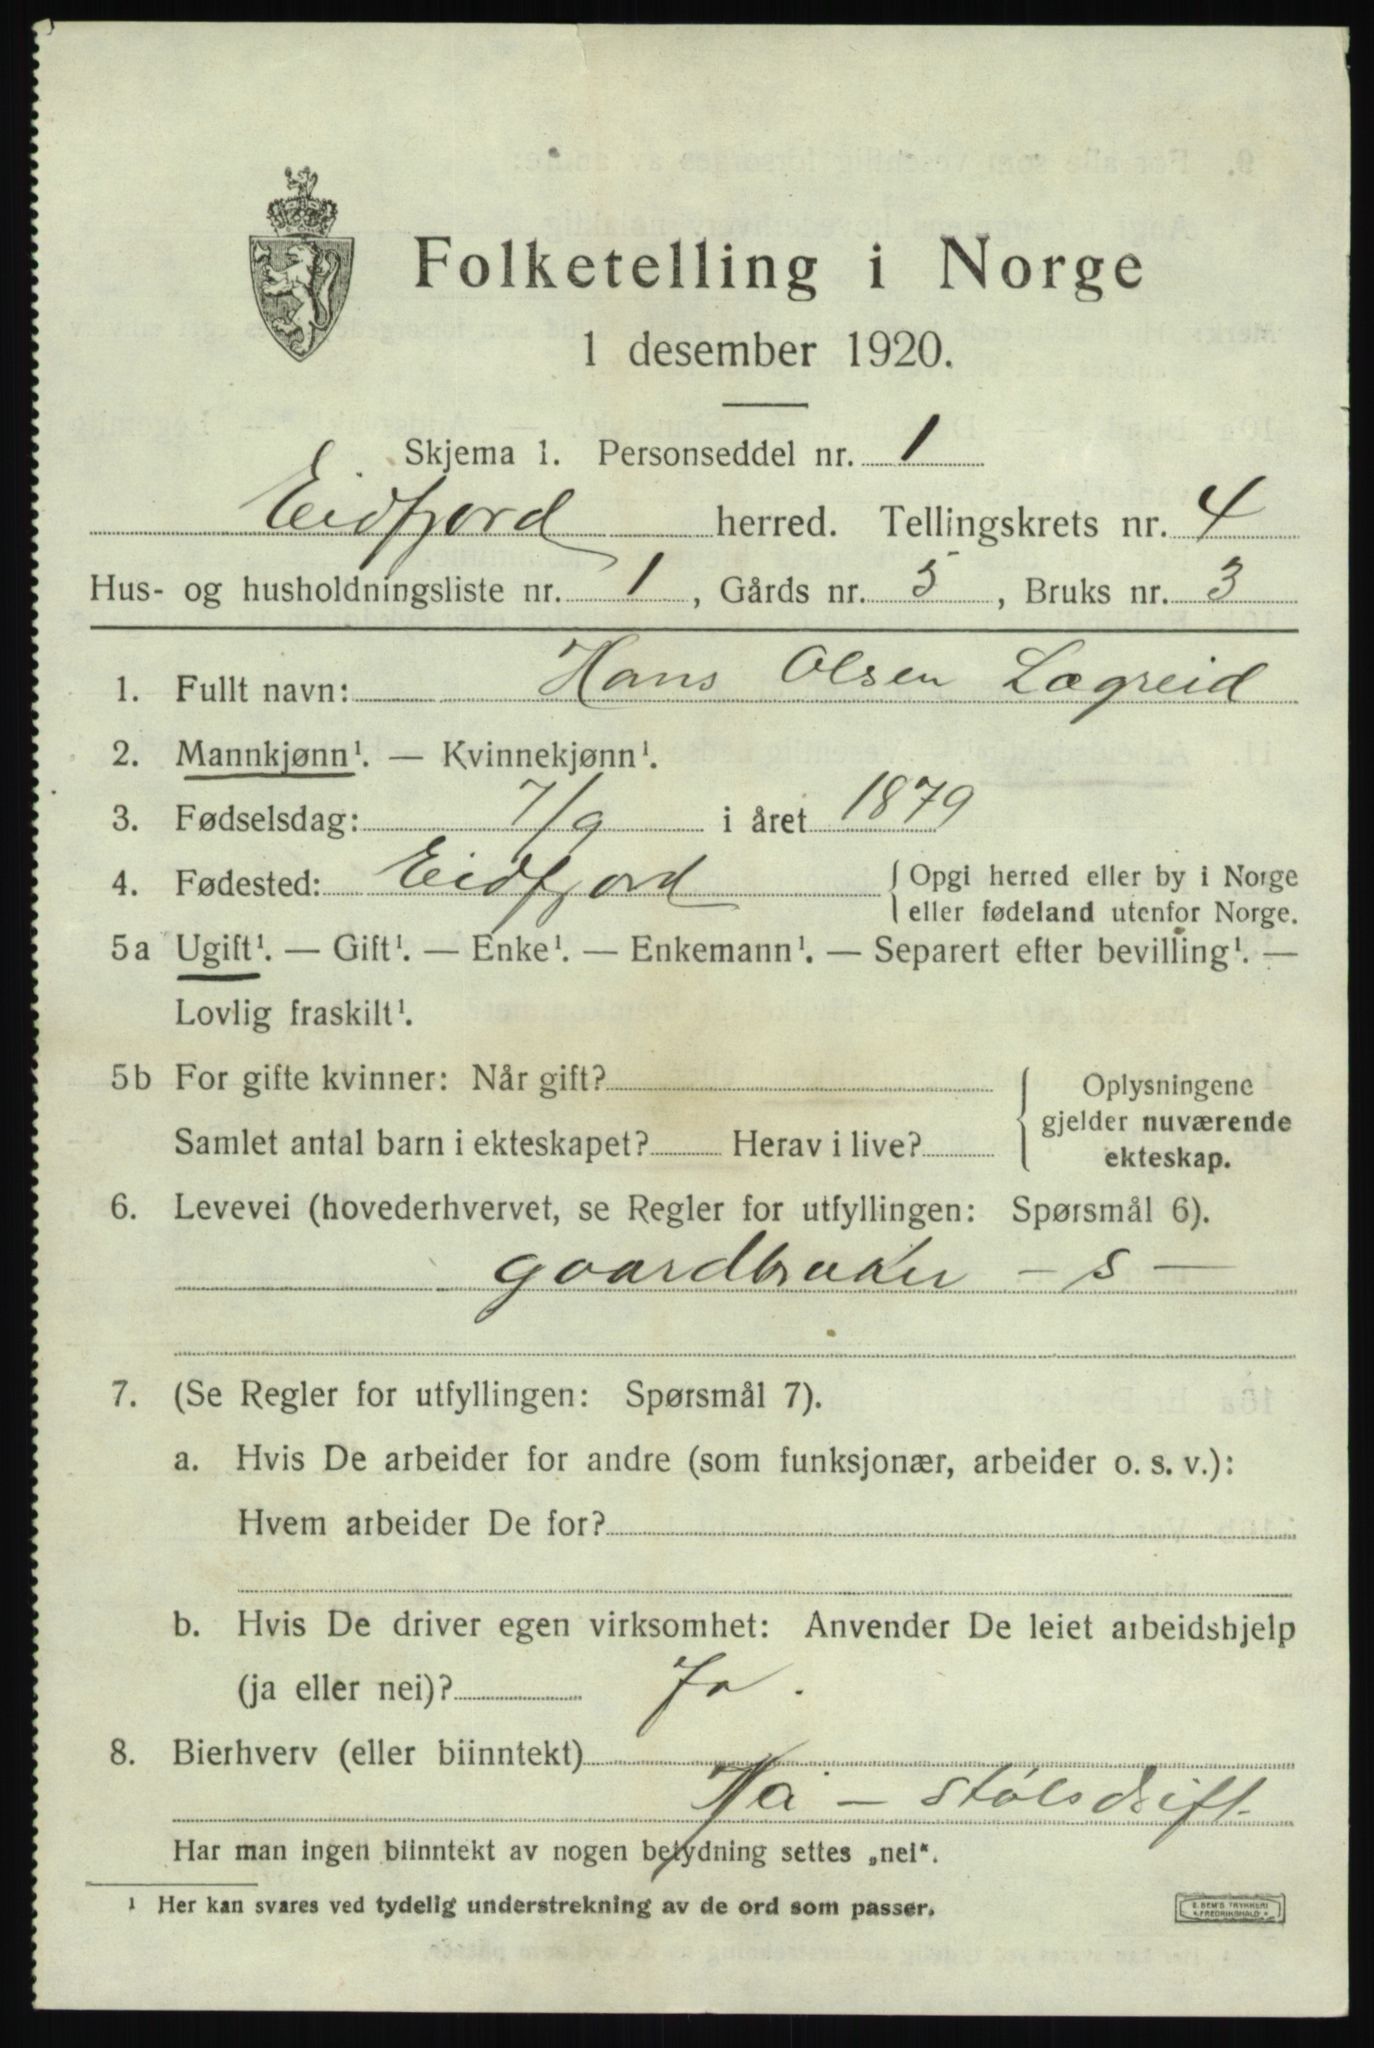 Folketelling i Norge
1 desember 1920.
Skjema 1. Personseddel nr. 1
Eidfjord herred. Tellingskrets nr. 4
Hus- og husholdningsliste nr. 1, Gårds nr. 5, Bruks nr. 3
1. Fullt navn: Hans Olsen Lægreid
2. Mannkjønn¹. — Kvinnekjønn¹.
3. Fødselsdag: 7/9 i året 1879
4. Fødested: Eidfjord { Opgi herred eller by i Norge
eller fødeland utenfor Norge.
5a Ugift¹. — Gift¹. — Enke¹. — Enkemann¹. — Separert efter bevilling¹. —
Lovlig fraskilt¹.
5b For gifte kvinner: Når gift?
Samlet antal barn i ekteskapet? Herav i live?
{ Oplysningene
gjelder nuværende
ekteskap.
6. Levevei (hovederhvervet, se Regler for utfyllingen: Spørsmål 6).
gaardbruker - s -
7. (Se Regler for utfyllingen: Spørsmål 7).
a. Hvis De arbeider for andre (som funksjonær, arbeider o. s. v.):
Hvem arbeider De for?
b. Hvis De driver egen virksomhet: Anvender De leiet arbeidshjelp
(ja eller nei)? Ja.
8. Bierhverv (eller biinntekt)
- stølsdrift
Har man ingen biinntekt av nogen betydning settes „nei“.
¹ Her kan svares ved tydelig understrekning av de ord som passer.
E. SEM'S TRYKKERI
FREDRIKSHALD